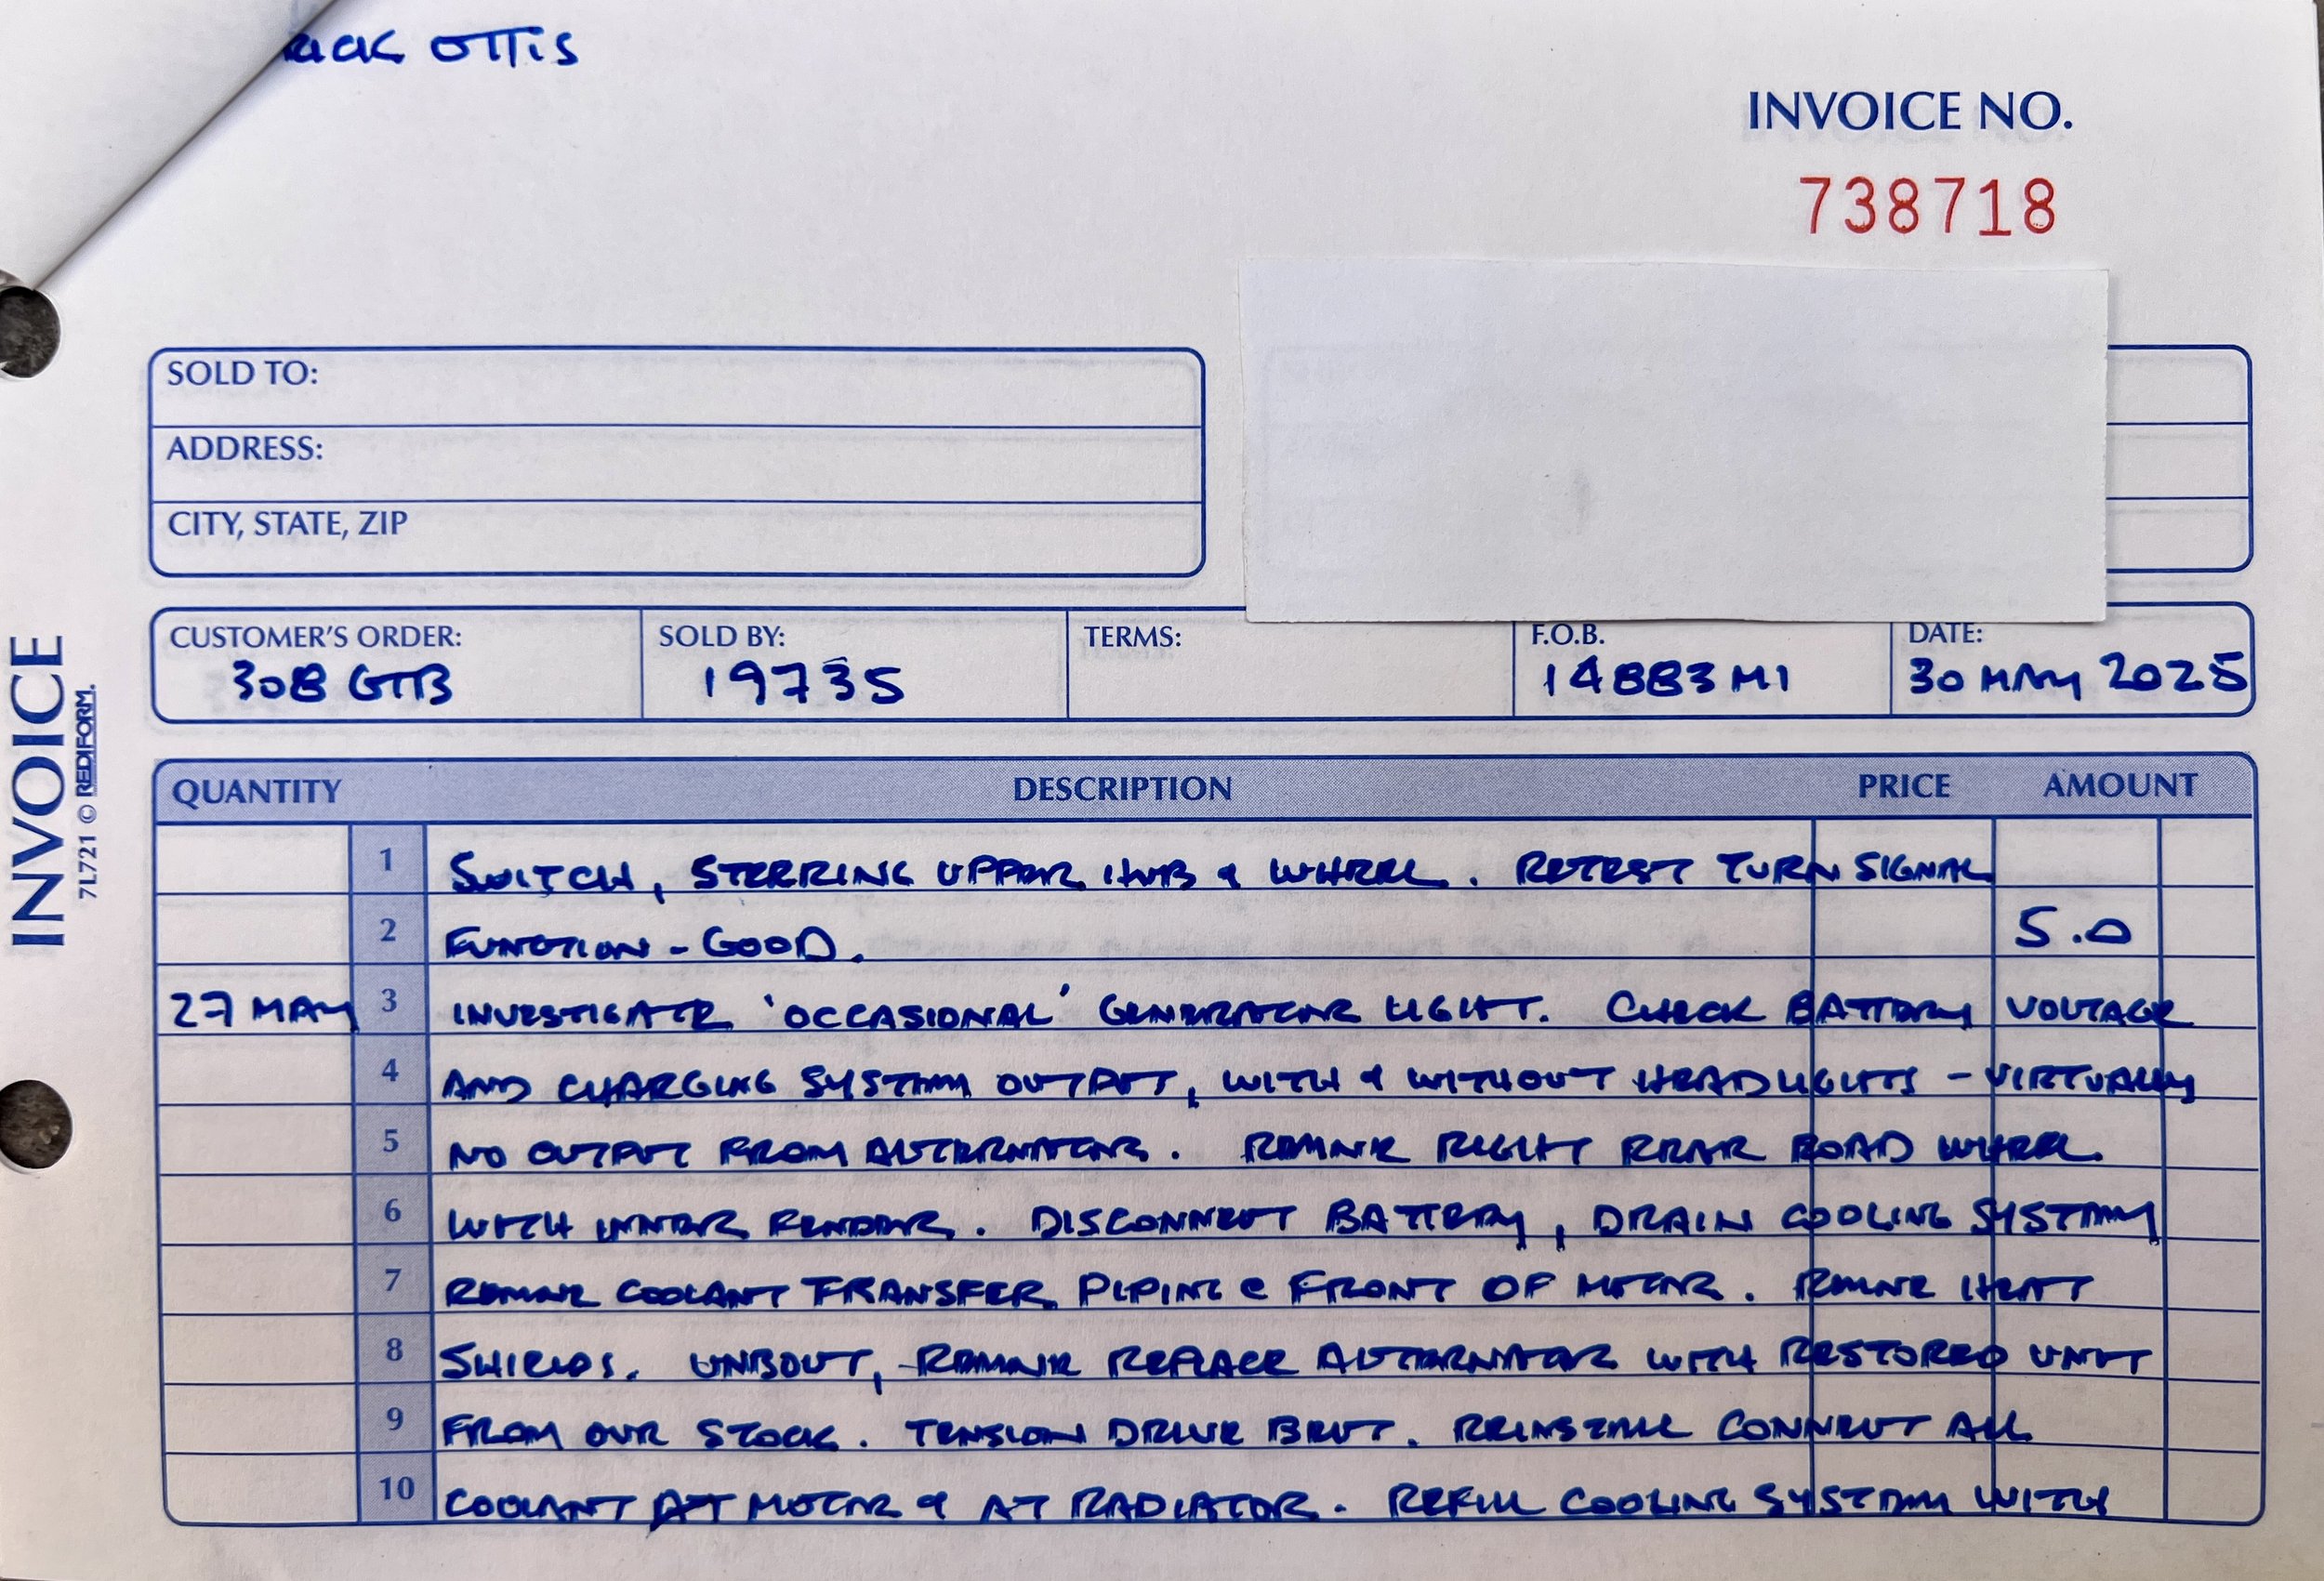 OTTIS
INVOICE NO.
738718
SOLD TO:
ADDRESS:
CITY, STATE, ZIP
CUSTOMER'S ORDER:
308 GTB
SOLD BY:
19735
TERMS:
F.O.B.
14883 MI
DATE:
30 MAY 2025
INVOICE
7L721 © REDIFORM.
QUANTITY DESCRIPTION PRICE AMOUNT
1 SWITCH, STEERING UPPER HUB & WHEEL. RETEST TURN SIGNAL
2 FUNCTION - GOOD. 5.0
27 MAY 3 INVESTIGATE 'OCCASIONAL' GENERATOR LIGHT. CHECK BATTERY VOLTAGE
4 AND CHARGING SYSTEM OUTPUT, WITH & WITHOUT HEADLIGHTS - VIRTUALLY
5 NO OUTPUT FROM ALTERNATOR. REMOVE RIGHT REAR ROAD WHEEL
6 WITH INNER FENDER. DISCONNECT BATTERY, DRAIN COOLING SYSTEM
7 REMOVE COOLANT TRANSFER PIPING @ FRONT OF MOTOR. REMOVE HEAT
8 SHIELDS. UNBOLT, REMOVE REPLACE ALTERNATOR WITH RESTORED UNIT
9 FROM OUR STOCK. TENSION DRIVE BELT. REINSTALL CONNECT ALL
10 COOLANT AT MOTOR & AT RADIATOR. REFILL COOLING SYSTEM WITH